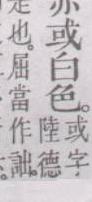 亦或白色。或字
陸德
也。屈當作詘。